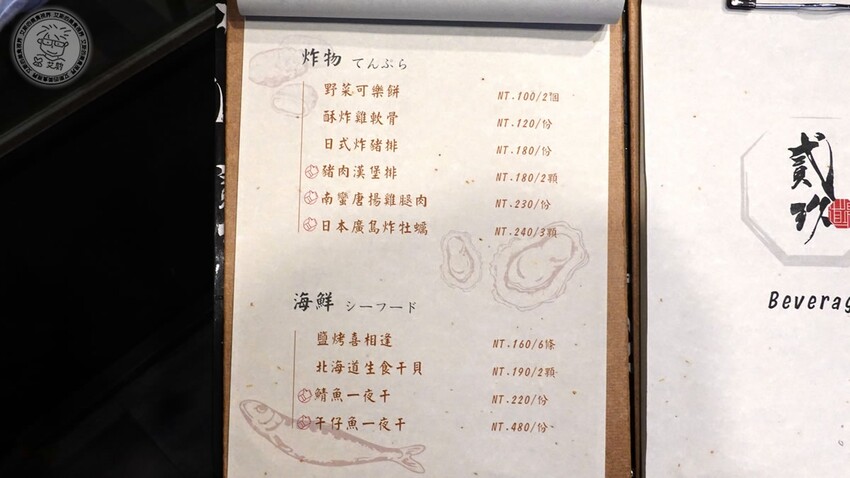 炸物 てんぷら
野菜可樂餅 NT.100/2個
酥炸雞軟骨 NT.120/份
日式炸豬排 NT.180/份
豬肉漢堡排 NT.180/2顆
南蠻唐揚雞腿肉 NT.230/份
日本廣島炸牡蠣 NT.240/3顆
海鮮 シーフード
鹽烤喜相逢 NT.160/6條
北海道生食干貝 NT.190/2顆
鯖魚一夜干 NT.220/份
午仔魚一夜干 NT.480/份
貳玖
Beverag